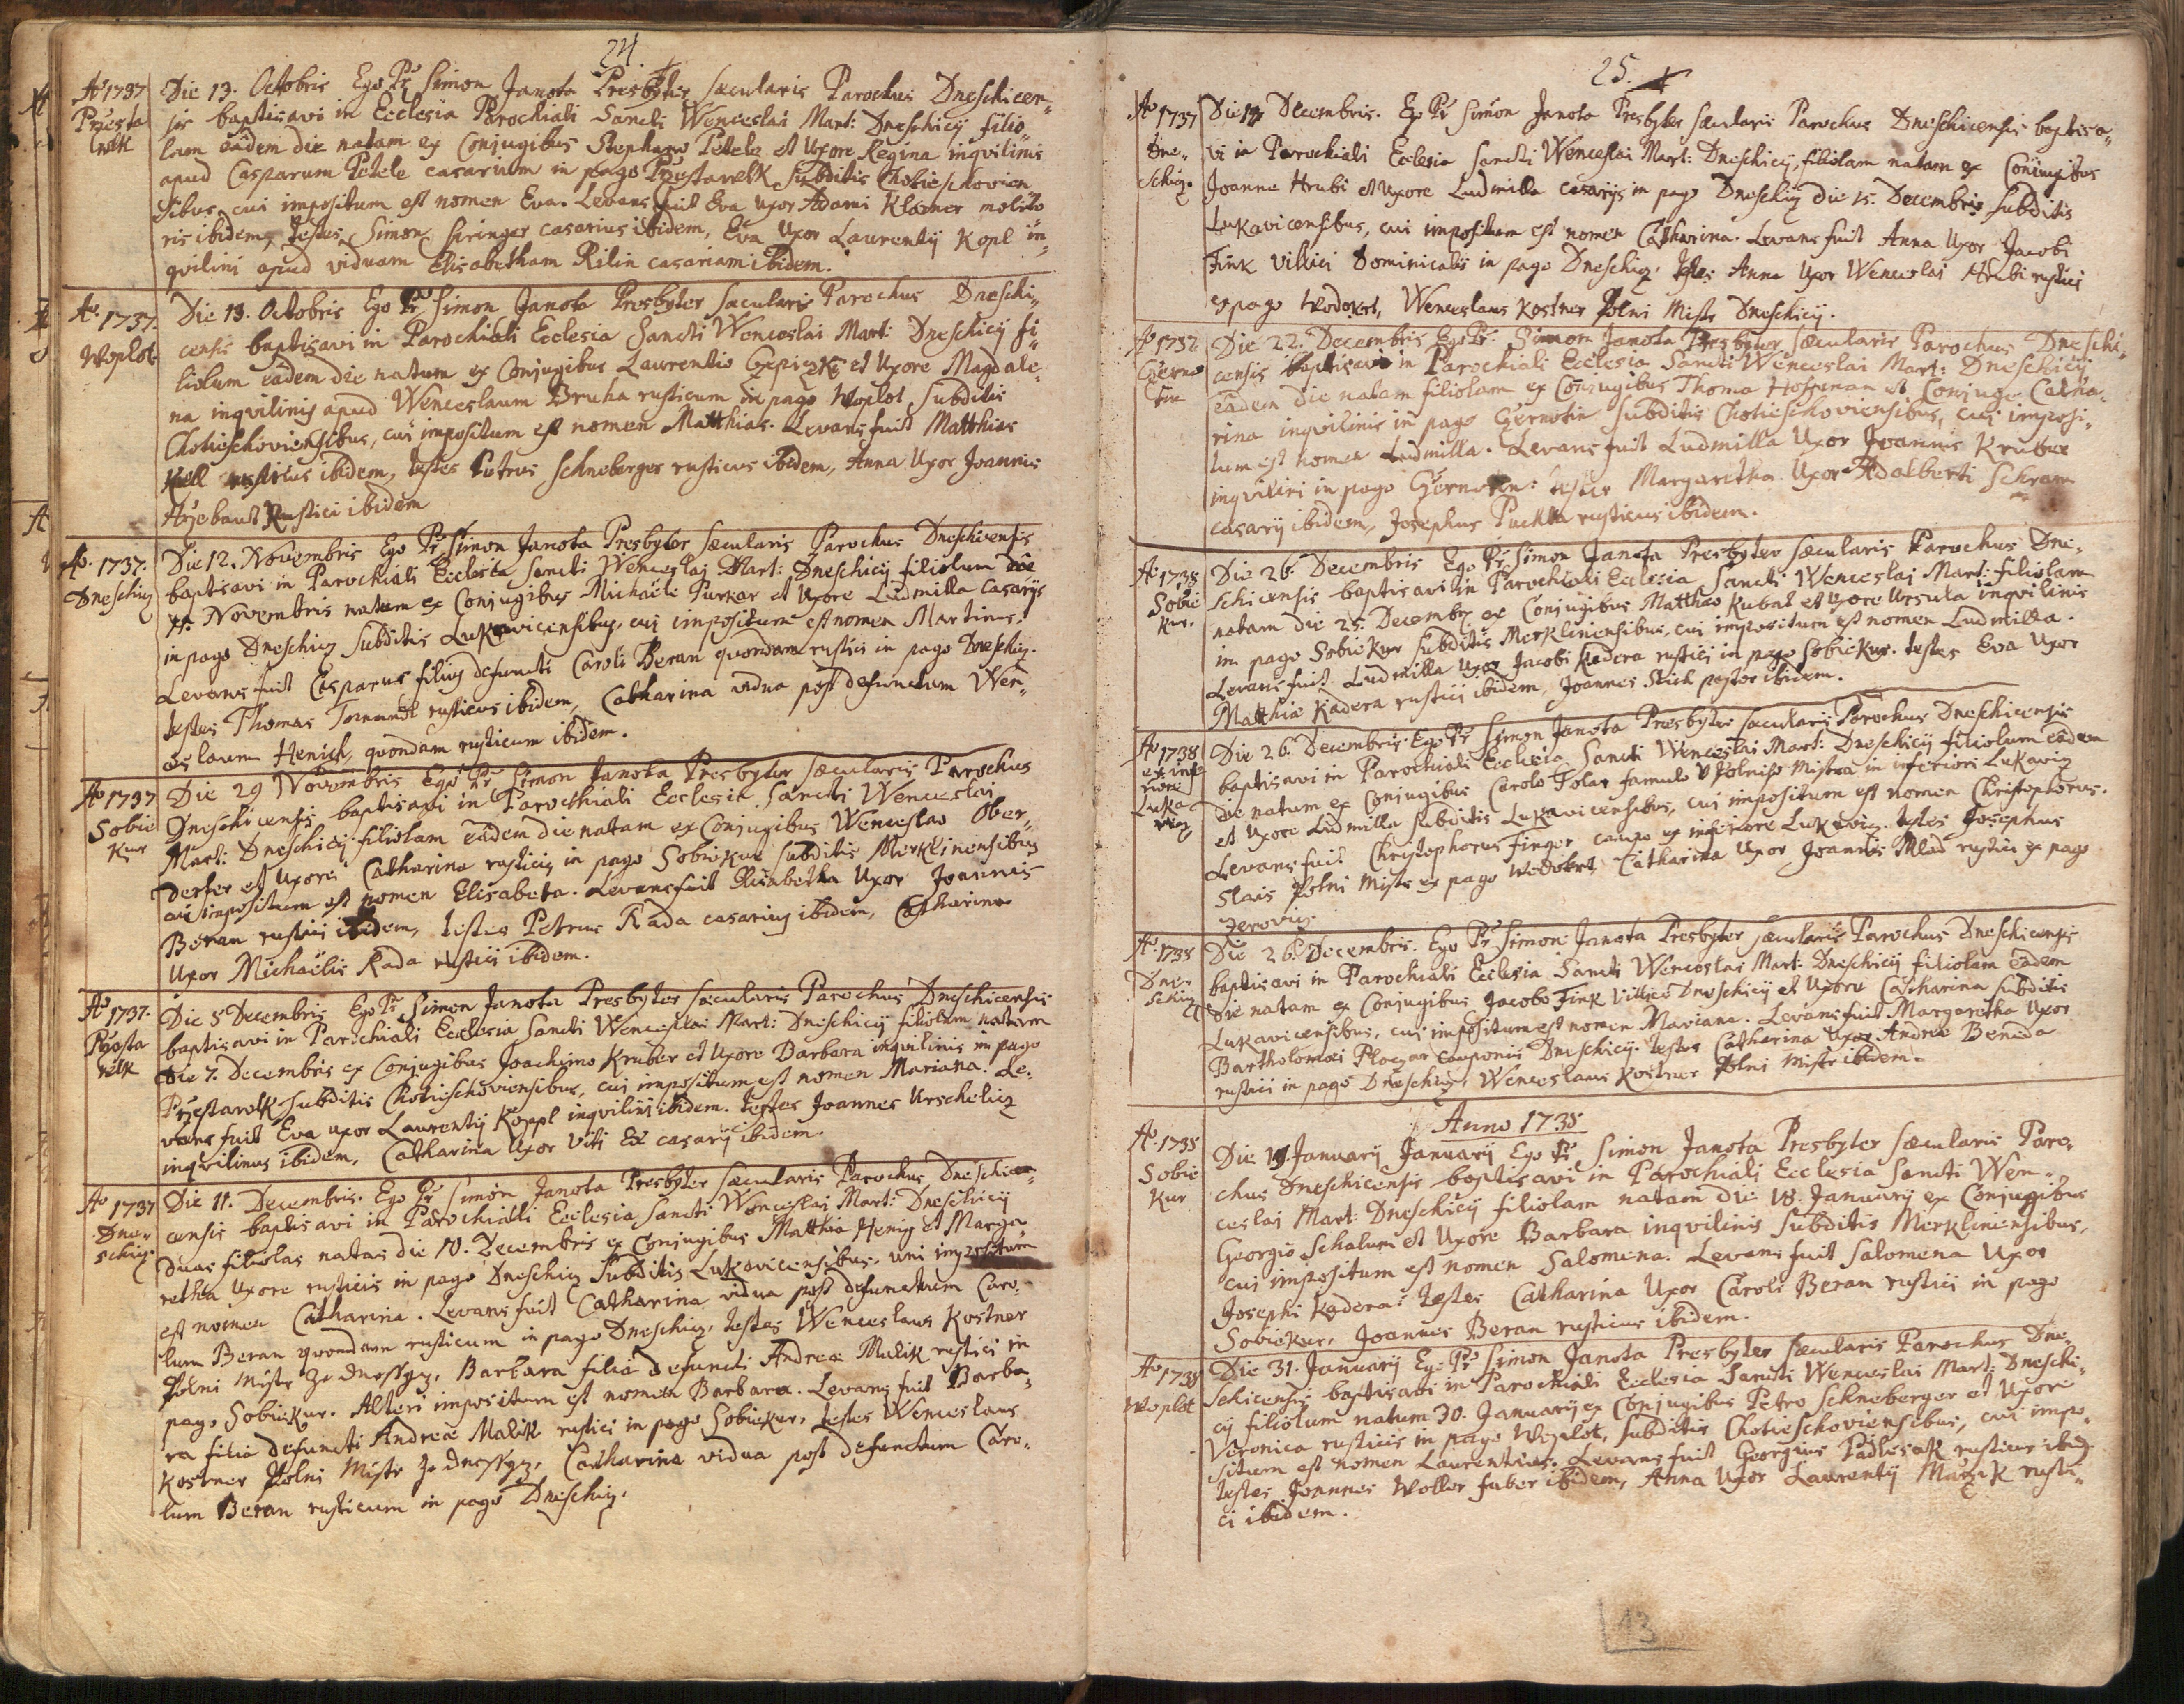 24.
Aō 1737
Przesta
welk
Die 13. Octobris Ego Pr Simon Janota Presbyter sæcularis Parochus Dneschicen„
sis baptisavi in Ecclesia Parochiali Sancti Wenceslai Mart: Dneschicij filio„
lam eâdem die natam ex Conjugibus Stephano Petele et Uxore Regina inqvilinis
apud Casparum Petele casarium in pago Przestawelk Subditis Chotieschovien
sibus, cui impositum est nomen Eva. Levans fuit Eva Uxor Adami Klosner molito
ris ibidem, Testes Simon Siringer casarius ibidem, Eva Uxor Laurentij Kopl in„
qvilini apud viduam Elisabetham Rilin casariam ibidem.
Aō. 1737.
Woplot
Die 13. Octobris Ego Pr Simon Janota Presbyter sæcularis Parochus Dneschi„
censis baptisavi in Parochiali Ecclesia Sancti Wenceslai Mart: Dneschicij fi„
liolum eâdem die natum ex Conjugibus Laurentio Czepiczk et Uxore Magdale„
na inqvilinis apud Wenceslaum Bruha rusticum in pago Woplot, Subditis
Chotieschoviensibus, cui impositum est nomen Matthias. Levans fuit Matthias
rusticus ibidem, testes Petrus Schneberger rusticus ibidem, Anna Uxor Joannis
Hrzebaut Rustici ibidem
Aō. 1737.
Dneschicz
Die 12. Novembris Ego Pr Simon Janota Presbyter sæcularis Parochus Dneschicensis
baptisavi in Parochiali Ecclesia Sancti Wenceslai Mart: Dneschicij filiolum die
11. Novembris natum ex Conjugibus Michaële Purkar et Uxore Ludmilla Casarijs
in pago Dneschicz Subditis Lukavicensibus, cui impositum est nomen Martinus.
Levans fuit Casparus filius defuncti Caroli Beran quondam rustici in pago Dneschicz.
testes Thomas rusticus ibidem, Catharina vidua post defunctum Wen„
ceslaum Henich, quondam rusticum ibidem.
Aō 1737
Sobie
kur
Die 29 Novembris Ego Pr Simon Janota Presbyter sæcularis Parochus
Dneschicensis baptisavi in Parochiali Ecclesia Sancti Wenceslai
Mart: Dneschicij filiolam eâdem die natam ex Conjugibus Wenceslao Ober„
derfer et Uxore Catharina rusticis in pago Sobiekur Subditis Merklinensibus
cui impositum est nomen Elisabeta. Levans fuit Elisabetha Uxor Joannis
Beran rustici ibidem, testes Petrus Kada casarius ibidem, Catharina
Uxor Michaëlis Kada rustici ibidem.
Aō 1737.
Przesta
velk
Die 5 Decembris Ego Pr Simon Janota Presbyter sæcularis Parochus Dneschicensis
baptisavi in Parochiali Ecclesia Sancti Wenceslai Mart: Dneschicij filiolam natam
die 7. Decembris ex Conjugibus Joachimo Kruber et Uxore Barbara inqvilinis in pago
Przestavolk Subditis Chotieschoviensibus, cui impositum est nomen Mariana. Le„
vans fuit Eva uxor Laurentij Koppl inqvilini ibidem. Testes Joannes Urschelicz
inqvilinus ibidem, Catharina Uxor Viti casarij ibidem.
Aō 1737
Dne„
schicz.
Die 11. Decembris. Ego Pr Simon Janota Presbyter sæcularis Parochus Dneschi„
censis baptisavi in Parochiali Ecclesia Sancti Wenceslai Mart: Dneschicij
duas filiolas natas die 10. Decembris ex Conjugibus Matthia Henig et Marga„
retha Uxore rusticis in pago Dneschicz Subditis Lukavicensibus, uni impositum
est nomen Catharina. Levans fuit Catharina vidua post defunctum Caro„
lum Beran quondam rusticum in pago Dneschicz, testes Wenceslaus Kostner
Polni Mistr ze Dnessycz, Barbara filia defuncti Andreæ Malik rustici in
pago Sobiekur. Alteri impositum est nomen Barbara. Levans fuit Barba„
ra filia defuncti Andreæ Malik rustici in pago Sobiekur, testes Wenceslaus
Kostner Polni Mistr ze Dnessycz, Catharina vidua post defunctum Caro„
lum Beran rusticum in pago Dneschicz.
25.
Aō 1737
Dne„
schicz.
Die 17 Decembris. Ego Pr Simon Janota Presbyter sæcularis Parochus Dneschicensis baptisa„
vi in Parochiali Ecclesia Sancti Wenceslai Mart: Dneschicij, filiolam natam ex Conjugibus
Joanne Hrubi et Uxore Ludmilla casarijs in pago Dneschicz die 15. Decembris Subditis
Lukavicensibus, cui impositum est nomen Catharina. Levans fuit Anna Uxor Jacobi
Fink Villici Dominicalis in pago Dneschicz. Testes Anna Uxor Wenceslai Hrubi rustici
ex pago Wodokrt, Wenceslaus Kostner Polni Mistr Dneschicij.
Aō 1737
Czerno
tin
Die 22. Decembris Ego Pr. Simon Janota Presbyter sæcularis Parochus Dneschi„
censis baptisavi in Parochiali Ecclesia Sancti Wenceslai Mart: Dneschicij
eâdem die natam filiolam ex Conjugibus Thoma Hofman et Conjuge Catha„
rina inqvilinis in pago Czernotin Subditis Chotieschoviensibus, cui imposi„
tum est nomen Ludmilla. Levans fuit Ludmilla Uxor Joannis Kruber
inqvilini in pago Czernotin: testes Margaretha Uxor Adalberti Schram
casarij ibidem, Josephus rusticus ibidem.
Aō 1738
Sobie
kur.
Die 26. Decembris Ego Pr Simon Janota Presbyter sæcularis Parochus Dne„
schicensis baptisavi in Parochiali Ecclesia Sancti Wenceslai Mart: filiolam
natam die 25. Decembr ex Conjugibus Matthæo Kubat et Uxore Ursula inqvilinis
in pago Sobiekur Subditis Merkliniensibus, cui impositum est nomen Ludmilla.
Levans fuit Ludmilla Uxor Jacobi Kadera rustici in pago Sobiekur. testes Eva Uxor
Matthiæ Kadera rustici ibidem, Joannes Stich pastor ibidem.
Aō 1738
ex infe
riori
Luka
wicz
Die 26. Decembris. Ego Pr Simon Janota Presbyter sæcularis Parochus Dneschicensis
baptisavi in Parochiali Ecclesia Sancti Wenceslai Mart: Dneschicij filiolum eâdem
die natum ex Conjugibus Carolo Tolar famulo V Polniho Mistra in inferiori Lukawicz
et Uxore Ludmilla Subditis Lukavicensibus, cui impositum est nomen Christophorus.
Levans fuit Christophorus Finger caupo ex inferiore Lukawicz. testes Josephus
Slais Polni Mistr ex pago Wodokrt, Catharina Uxor Joannis Mlad rustici ex pago
Zerovicz.
Aō 1738
Dne„
schicz
Die 26. Decembris. Ego Pr Simon Janota Presbyter sæcularis Parochus Dneschicensis
baptisavi in Parochiali Ecclesia Sancti Wenceslai Mart: Dneschicij filiolam eâdem
die natam ex Conjugibus Jacobo Fink Villico Dneschicij et Uxore Catharina Subditis
Lukavicensibus, cui impositum est nomen Mariana. Levans fuit Margaretha Uxor
Bartholomæi Ploczar cauponis Dneschicij. testes Catharina Uxor Andreæ Beneda
rustici in pago Dneschicz, Wenceslaus Kostner Polni Mistr ibidem.
Anno 1738
Aō 1738
Sobie
kur
Die 19 Januarij Januarij Ego Pr Simon Janota Presbyter sæcularis Paro„
chus Dneschicensis baptisavi in Parochiali Ecclesia Sancti Wen„
ceslai Mart: Dneschicij filiolam natam die 18. Januarij ex Conjugibus
Georgio Schalum et Uxore Barbara inqvilinis Subditis Merkliniensibus,
cui impositum est nomen Salomena. Levans fuit Salomena Uxor
Josephi Kadera. Testes Catharina Uxor Caroli Beran rustici in pago
Sobiekur. Joannes Beran rusticus ibidem.
Aō 1738
Woplot
Die 31. Januarij Ego Pr Simon Janota Presbyter sæcularis Parochus Dne„
schicensis baptisavi in Parochiali Ecclesia Sancti Wenceslai Mart: Dneschi„
cij filiolum natum 30. Januarij ex Conjugibus Petro Schneberger et Uxore
Veronica rusticis in pago Woplot, Subditis Chotieschoviensibus, cui impo„
situm est nomen Laurentius. Levans fuit Georgius Padlesak rusticus ibid.
testes Joannes Woller faber ibidem, Anna Uxor Laurentij Maczk rusti„
ci ibidem.
13